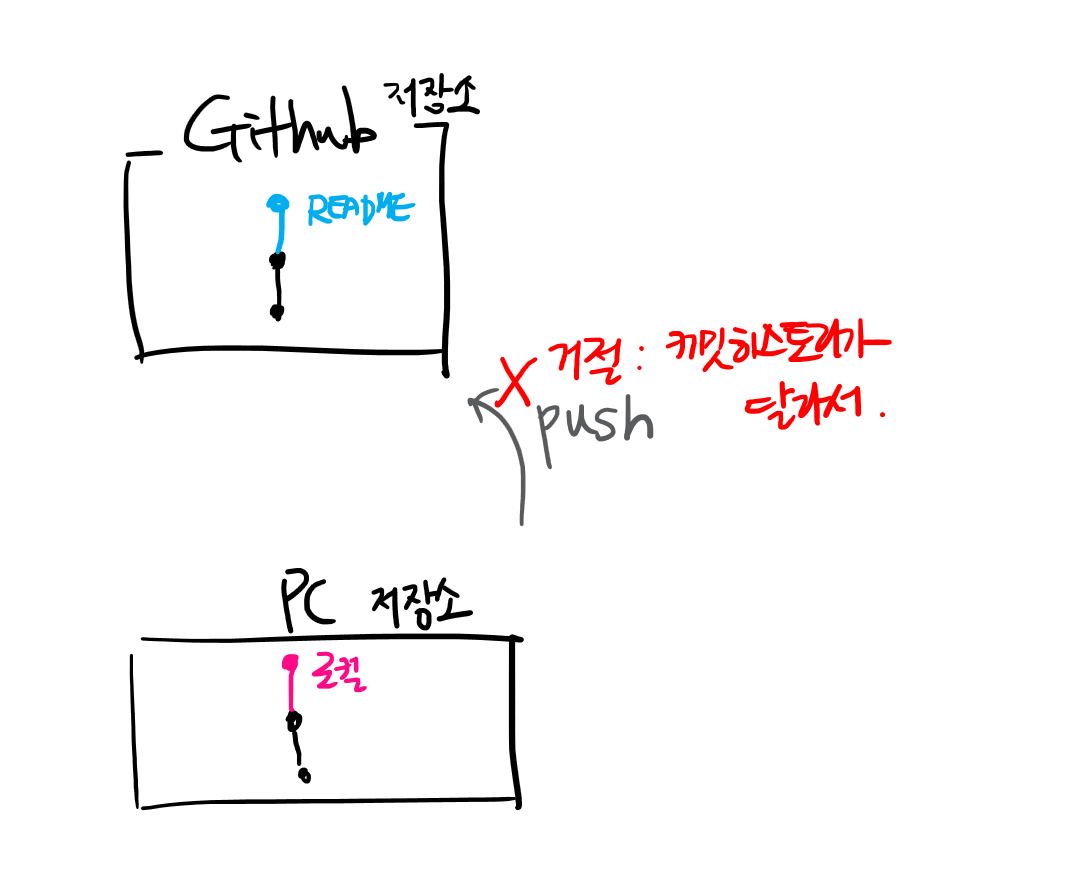 Github 저장소
README
X 거절 : 커밋히스토리가
달라서.
push
PC 저장소
로컬